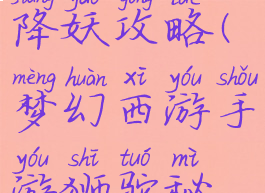 xiáng yāo gōng lüè
降妖攻略(
mèng huàn xī yóu shǒu
梦幻西游手
yóu shī tuó mì
游狮驼秘